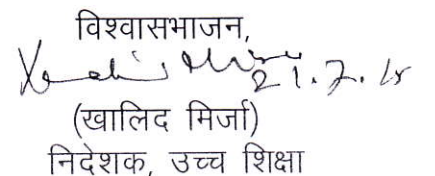 विश्वासभाजन,
21.7.15
(खालिद मिर्जा)
निदेशक, उच्च शिक्षा